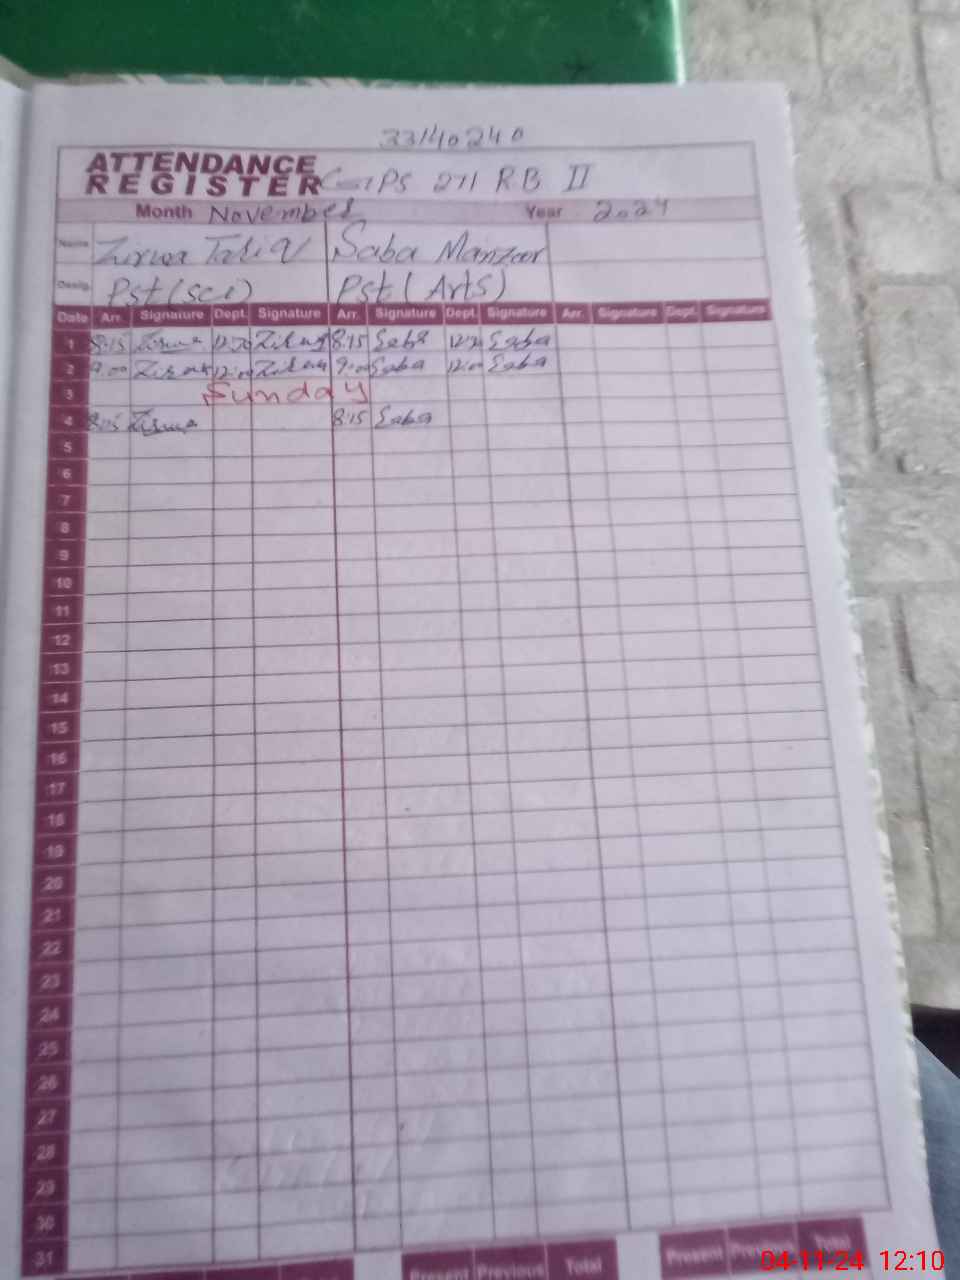 33140240
ATTENDANCE
REGISTER GGPS 271 RB II
Month November Year 2024
Name Zirwa Tariq Saba Manzoor
Desig. Pst (sci) Pst (Arts)
Date Arr. Signature Dept. Signature Arr. Signature Dept. Signature Arr. Signature Dept. Signature
1 8:15 Zirwa 12:30 8:15 Saba 12:30 Saba
2 9:00 12:00 9:00 Saba 12:00 Saba
3 Sunday
4 8:15 Zirwa 8:15 Saba
5
6
7
8
9
10
11
12
13
14
15
16
17
18
19
20
21
22
23
24
25
26
27
28
29
30
31 Present Previous Total Present Previous Total
04-11-24 12:10